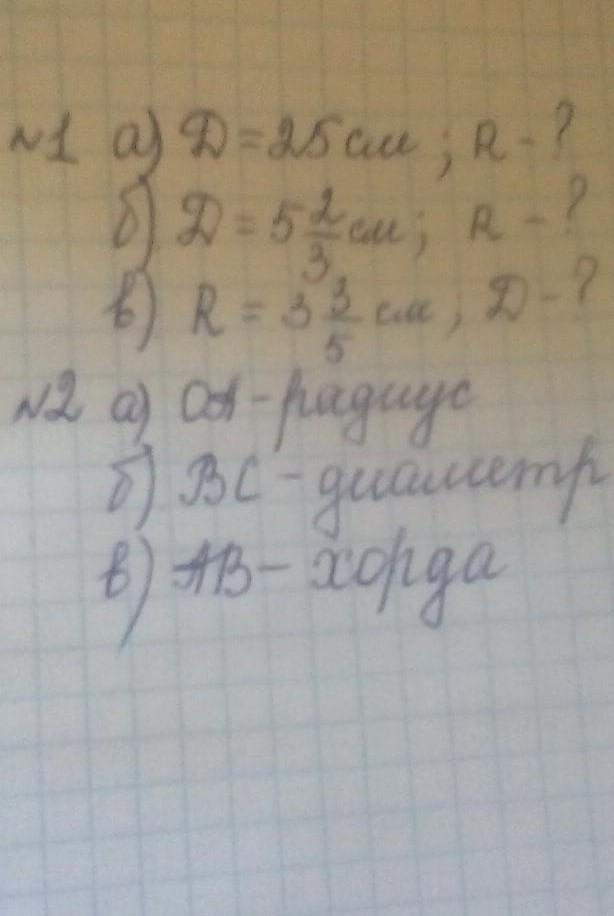 №1 а) D = 25 см ; R - ?
б) D = 5 2/3 см ; R - ?
в) R = 3 3/5 см , D - ?
№2 а) ОА - радиус
б) ВС - диаметр
в) АВ - хорда